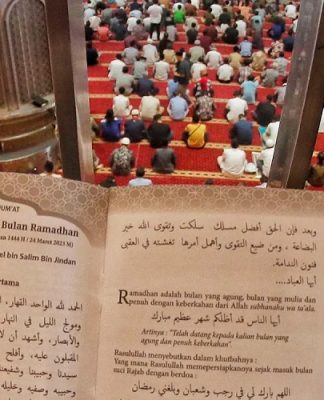 UM'AT
Bulan Ramadhan
1444 H / 24 Maret 2023 M)
el bin Salim Bin Jindan
rtama
الحمد لله الواحد القهار، ا
ومولج الليل في النهار
والأبصار، وأشهد أن لا
المقبلون عليه، وأفلح
سيدنا وحبيبنا وشفيعنا
وحبيبه وصفيه وخليله
وبعد فإن الحق أفضل مسلك سلكت وتقوى الله خير
البضاعة ، ومن ضيع التقوى وأهمل أمرها تغشته في العقبى
فنون الندامة.
أيها العباد....
Ramadhan adalah bulan yang agung, bulan yang mulia dan
penuh dengan keberkahan dari Allah subhanahu wa ta'ala.
أيها الناس قد أظلكم شهر عظيم مبارك
Artinya : "Telah datang kepada kalian bulan yang
agung dan penuh keberkahan".
Rasulullah menyebutkan dalam khutbahnya :
Yang mana Rasulullah mempersiapkannya sejak masuk bulan
suci Rajab dengan berdoa :
اللهم بارك لي في رجب وشعبان وبلغني رمضان